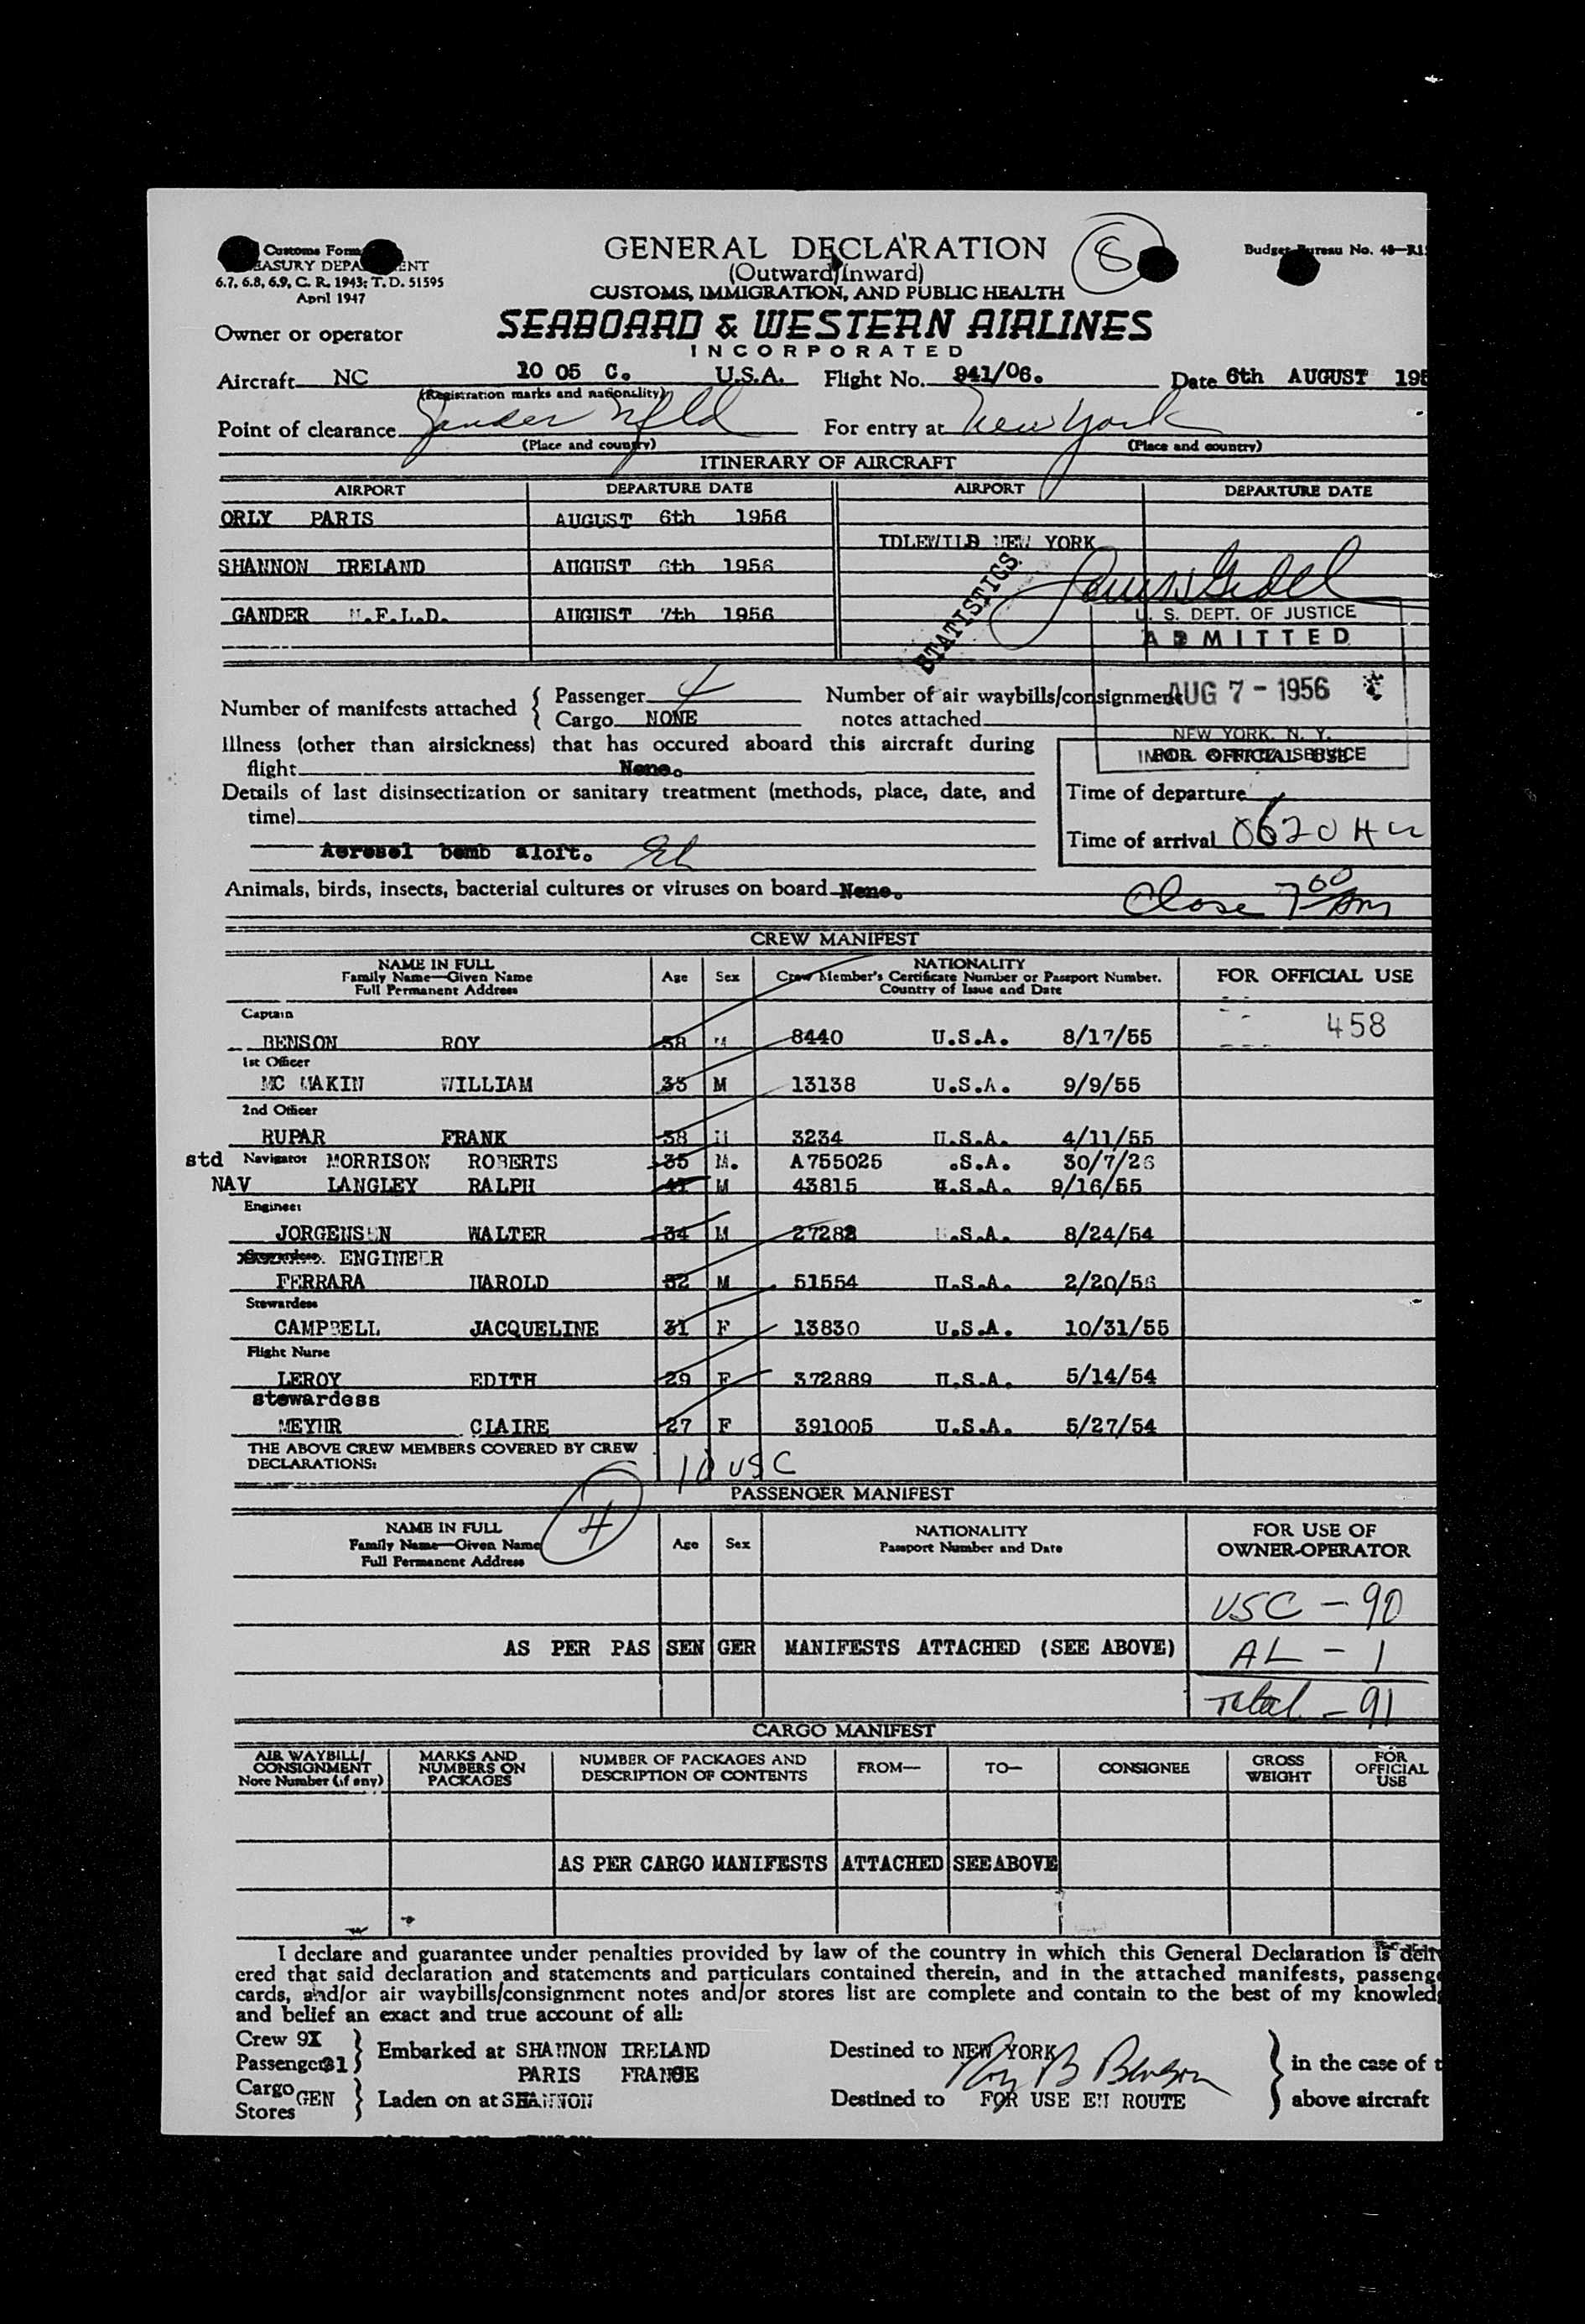 Customs Form
GENERAL DECLARATION
8
Budget Bureau No. 48-R1
6.7, 6.8, 6.9, C. R. 1943; T. D. 51595
April 1947
(Outward/Inward)
CUSTOMS, IMMIGRATION, AND PUBLIC HEALTH
Owner or operator
SEABOARD & WESTERN AIRLINES
INCORPORATED
Aircraft NC 10 05 C. U.S.A. Flight No. 941/06. Date 6th AUGUST 195
(Registration marks and nationality)
Point of clearance Gander Nfld For entry at New York
(Place and country) (Place and country)
ITINERARY OF AIRCRAFT
AIRPORT DEPARTURE DATE AIRPORT DEPARTURE DATE
ORLY PARIS AUGUST 6th 1956
IDLEWILD NEW YORK
SHANNON IRELAND AUGUST 6th 1956
STATISTICS
GANDER N.F.L.D. AUGUST 7th 1956
U. S. DEPT. OF JUSTICE
ADMITTED
AUG 7 - 1956
NEW YORK, N. Y.
Number of manifests attached { Passenger 4
Cargo NONE
Number of air waybills/consignment
notes attached
Illness (other than airsickness) that has occured aboard this aircraft during
flight None.
FOR OFFICIAL USE
Details of last disinsectization or sanitary treatment (methods, place, date, and
time)
Time of departure
Aerosel bomb aloft.
Time of arrival 0620
Animals, birds, insects, bacterial cultures or viruses on board None.
Close 7 00 Am
CREW MANIFEST
NAME IN FULL
Family Name—Given Name
Full Permanent Address
Age Sex
NATIONALITY
Crew Member's Certificate Number or Passport Number.
Country of Issue and Date
FOR OFFICIAL USE
Captain
458
BENSON ROY 38 M 8440 U.S.A. 8/17/55
1st Officer
MC MAKIN WILLIAM 35 M 13138 U.S.A. 9/9/55
2nd Officer
RUPAR FRANK 38 M 3234 U.S.A. 4/11/55
std Navigator MORRISON ROBERTS 35 M. A755025 .S.A. 30/7/26
NAV LANGLEY RALPH M 43815 U.S.A. 9/16/55
Engineer
JORGENSEN WALTER 34 M 27282 U.S.A. 8/24/54
ENGINEER
FERRARA HAROLD 32 M 51554 U.S.A. 2/20/56
Stewardess
CAMPBELL JACQUELINE 31 F 13830 U.S.A. 10/31/55
Flight Nurse
LEROY EDITH 29 F 372889 U.S.A. 5/14/54
stewardess
MEYHR CLAIRE 27 F 391005 U.S.A. 5/27/54
THE ABOVE CREW MEMBERS COVERED BY CREW
DECLARATIONS:
10 USC
PASSENGER MANIFEST
4
NAME IN FULL
Family Name—Given Name
Full Permanent Address
Age Sex
NATIONALITY
Passport Number and Date
FOR USE OF
OWNER-OPERATOR
USC - 90
AS PER PAS SEN GER MANIFESTS ATTACHED (SEE ABOVE)
AL - 1
Total - 91
CARGO MANIFEST
AIR WAYBILL/
CONSIGNMENT
Note Number (if any)
MARKS AND
NUMBERS ON
PACKAGES
NUMBER OF PACKAGES AND
DESCRIPTION OF CONTENTS
FROM— TO— CONSIGNEE
GROSS
WEIGHT
FOR
OFFICIAL
USE
AS PER CARGO MANIFESTS ATTACHED SEE ABOVE
I declare and guarantee under penalties provided by law of the country in which this General Declaration is deliv
ered that said declaration and statements and particulars contained therein, and in the attached manifests, passenge
cards, and/or air waybills/consignment notes and/or stores list are complete and contain to the best of my knowledg
and belief an exact and true account of all:
Crew 9
Passengers
Embarked at SHANNON IRELAND
PARIS FRANCE
Destined to NEW YORK
Roy B Benson
in the case of t
Cargo GEN
Stores
Laden on at SHANNON
Destined to FOR USE EN ROUTE
above aircraft